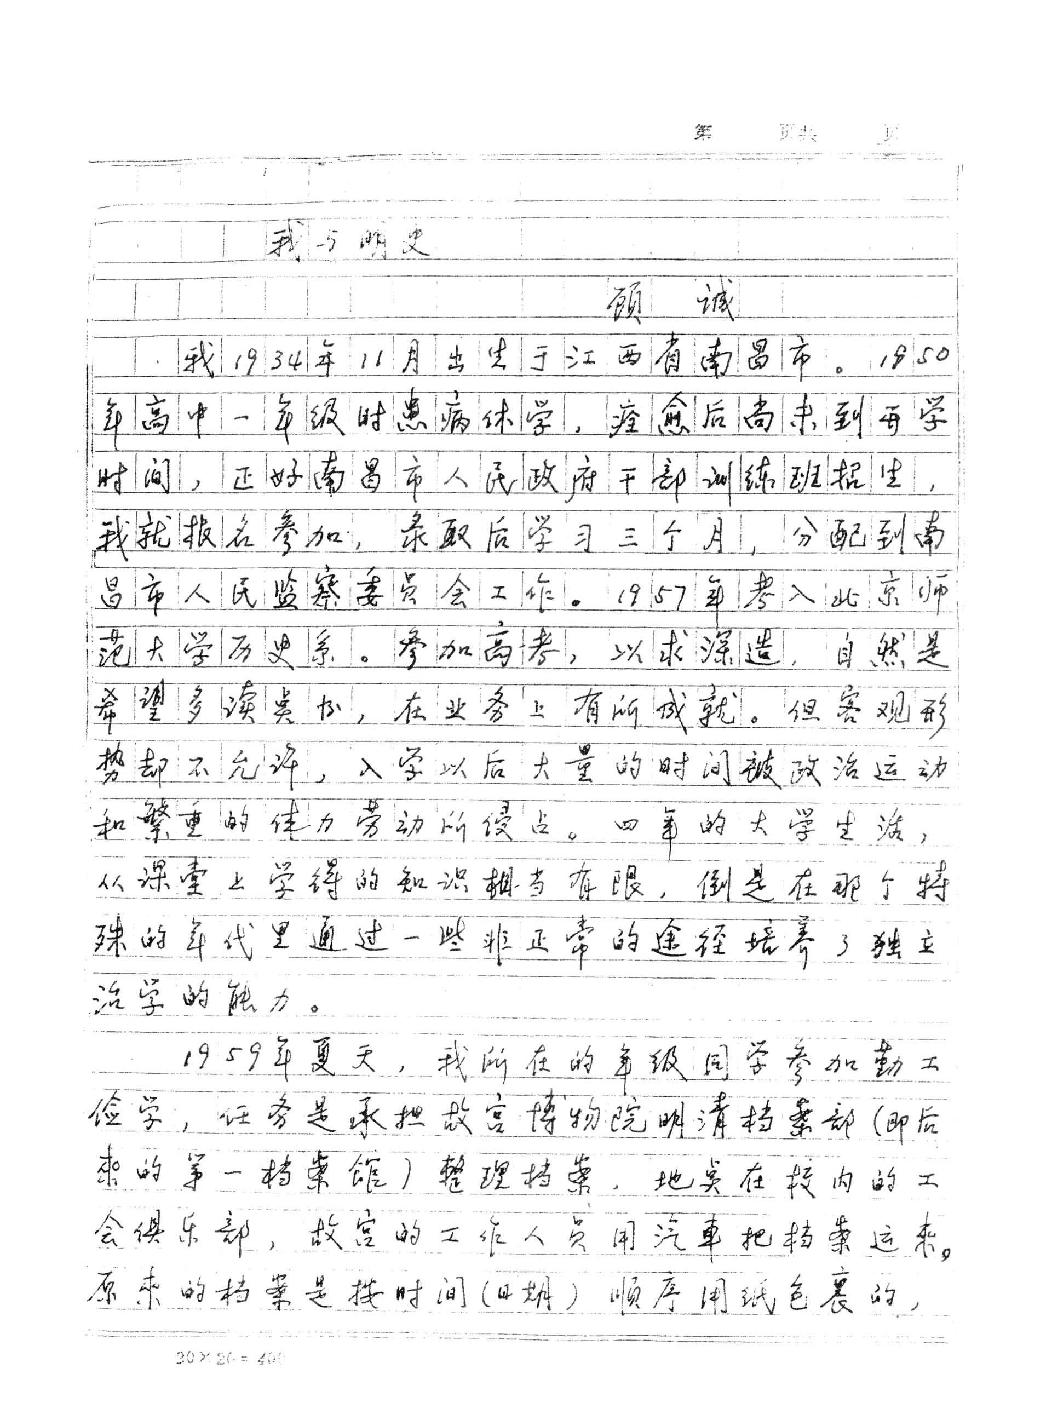 第 页共 页
我与明史
顾 诚
我1934年11月出生于江西省南昌市。1950
年高中一年级时患病休学，痊愈后尚未到开学
时间，正好南昌市人民政府干部训练班招生，
我就报名参加，录取后学习三个月，分配到南
昌市人民监察委员会工作。1957年考入北京师
范大学历史系。参加高考，以求深造，自然是
希望多读点书，在业务上有所成就。但客观形
势却不允许，入学以后大量的时间被政治运动
和繁重的体力劳动所侵占。四年的大学生活，
从课堂上学得的知识相当有限，倒是在那个特
殊的年代里通过一些非正常的途径培养了独立
治学的能力。
1959年夏天，我所在的年级同学参加勤工
俭学，任务是承担故宫博物院明清档案部（即后
来的第一档案馆）整理档案，地点在校内的工
会俱乐部，故宫的工作人员用汽車把档案运来。
原来的档案是按时间（日期）顺序用纸包裹的，
20×20=400